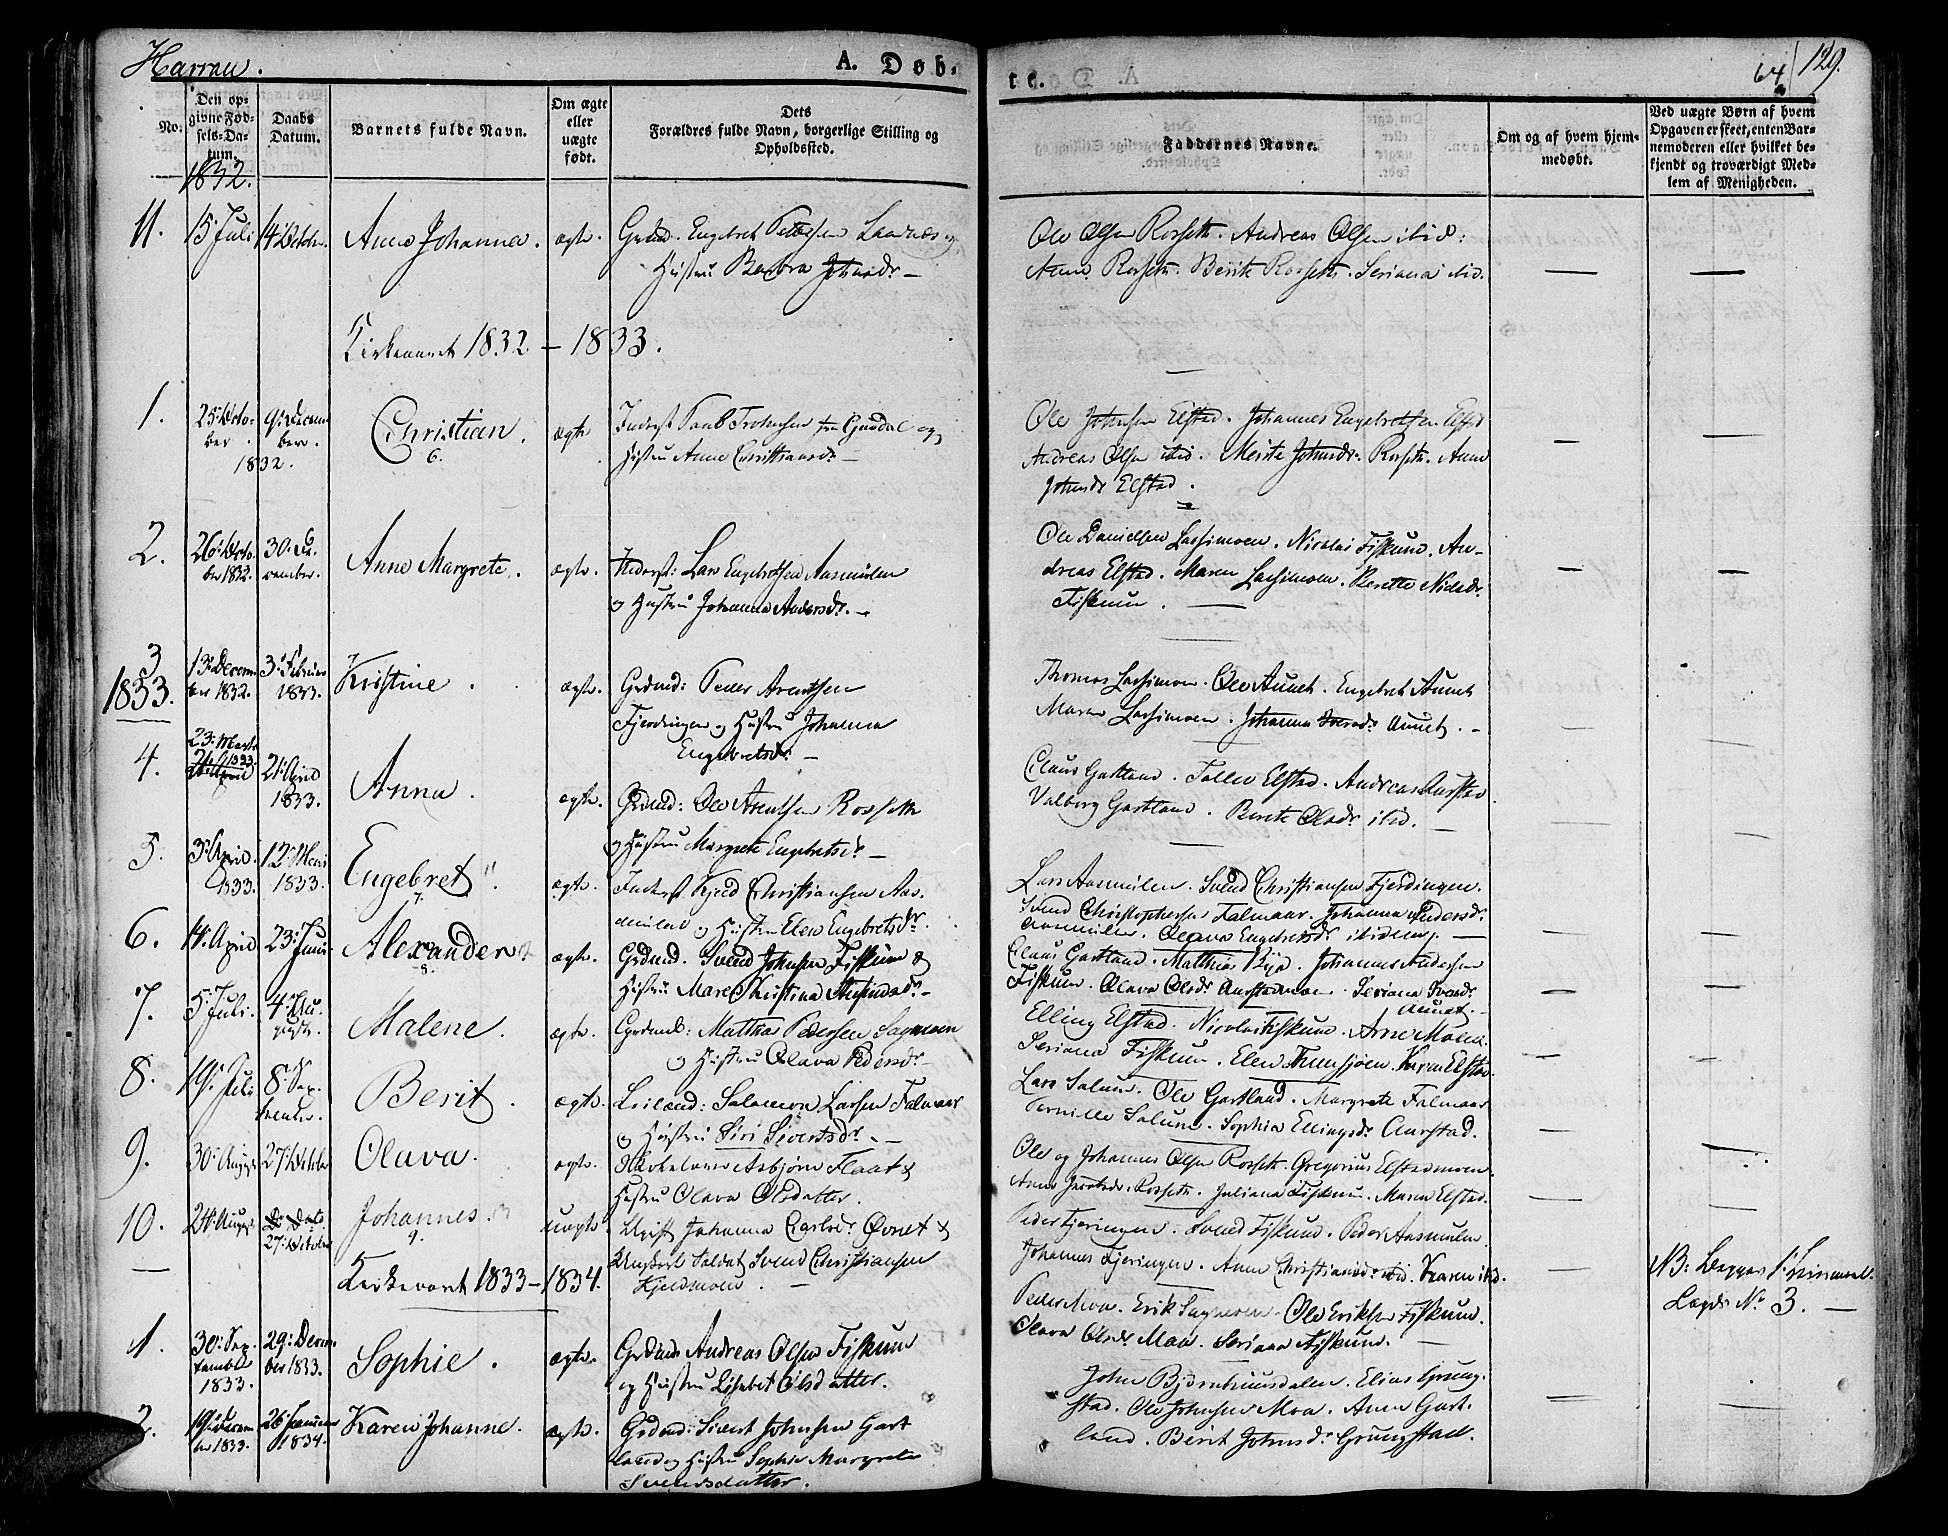 Harran.
A. Døb-
te.
64/129.
No.
Den op-
givne Fød-
sels-Da-
tum.
Daabs
Datum.
Barnets fulde Navn.
Om ægte
eller
uægte
født.
Dets
Forældres fulde Navn, borgerlige Stilling og
Opholdssted.
Faddernes Navne.
Om og af hvem hjem-
medøbt.
Ved uægte Børn af hvem
Opgaven er skeet, enten Bar-
nemoderen eller hvilket be-
kjendt og troværdigt Med-
lem af Menigheden.
1832.
11. 15 Juli 14 Octobr. Anne Johanna. ægte.
Grdmd. Engebret Pettersen
Hustru Barbra Johnsdr –
Ole Olsen Rosseth. Andreas Olsen ibid:
Anne Rosseth. Berit Rosseth. Seriana ibid.
Kirkeaaret 1832 – 1833.
1. 25: Octo-
ber
1832.
9: Decem
ber.
Christian.
6.
ægte
Inderst
Hustru Anne Christiansdr –
Ole Johnsen Elstad. Johannes Engebretsen Elstad
Andreas Olsen ibid. Merite Johnsdr: Rosseth. Anne
Johnsdr Elstad.
2. 26: Octo-
ber 1832.
30: De-
cember.
Anne Margrete. ægte.
Inderst: Lars Engebretsen Aasmulen
og Hustru Johanna Andersdr. –
Ole Danielsen Lassemoen. Nicolai Fiskum. An-
dreas Elstad. Maren Lassemoen. Berette Nilsdr
Fiskum.
3
1833.
13: Decem
ber 1832.
3: Februar
1833.
Kristine. ægte.
Grdmd: Peder Arentsen
Fjerdingen og Hustru Johanna
Engebretsdr –
Thomas Lassemoen. Ole Aunet. Engebret Aunet
Maren Lassemoen. Johanna Aunet. –
4. 23: Marts
1833.
21: April
1833.
Anna. ægte.
Grdmd: Ole Arentsen Rosseth
og Hustru Margrete Engebretsdr –
Claus Gartland. Elstad. Andreas Aurstad
Valborg Gartland. Berit Olsdr ibid. –
5. 3: April
1833.
12: Mai
1833.
Engebret.
7.
ægte.
Inderst Christiansen Aas-
mulen og Hustru Elen Engebretsdr.
Lars Aasmulen. Svend Christiansen Fjerdingen.
Svend Christophersen Falmaar. Johanna Andersdr
Aasmulen. Olava Engebretsdr ibidem. –
6. 14: April 23: Juni Alexander
8.
ægte.
Grdmd. Svend Johnsen Fiskum &
Hustru Maren Christina
Claus Gartland. Matthias Bye. Johannes Andersen
Fiskum. Olava Olsdr Aurstadmoen. Seriana Svendr
Aunet. –
7. 5: Juli. 4: Au-
gust. Malene. ægte.
Grdmd: Matthias Pedersen Sagmoen
og Hustru Olava Pedersdr
Elling Elstad. Nicolai Fiskum. Arne Moen.
Seriana Fiskum. Elen Tunnsjøen. Karen Elstad.
8. 19: Juli 8: Sep-
tember. Berit. ægte.
Leilænd: Salamon Larsen Falmaar
og Hustru Siri Sivertsdr. –
Lars Salum. Ole Gartland. Margrete Falmaar
Pernille Salum. Sophia Ellingsdr Aurstad.
9. 30: August 27: October Olava. ægte.
Asbjørn Flaat &
Hustru Olava Olsdatter.
Ole og Johannes Olsen Rosseth. Gregorius Elstadmoen
Anne Jacobsdr. Rosseth. Juliana Fiskum. Maren Elstad.
10. 24: August
27: October
Johannes.
9.
uægte.
Ugift Johanna Carlsdr Øvnet &
Ungkarl Soldat Svend Christiansen
Kjeldmoen. –
Peder Fjeringen. Svend Fiskum. Peder Aasmulen
Johannes Fjeringen. Anne Christiansdr ibid. Karen ibid.
NB: Begges 1:
Lægds No 3. –
Kirkeaaret 1833 – 1834.
1. 30: Sep-
tember
1833.
29: Decem
ber 1833.
Sophie. ægte.
Grdmd: Andreas Olsen Fiskum
og Hustru Lisabet Olsdatter.
Peder Moa. Erik Sagmoen. Ole Eriksen Fiskum.
Olava Olsdr Moa. Seriana Fiskum. –
2. 19: Decem
ber 1833.
26: Januar
1834.
Karen Johanne. ægte.
Grdmd: Sivert Johnsen Gart
land og Hustru Sophie Margrete
Svendsdatter.
John Bjørnhuusdalen. Elias Grung-
stad. Ole Johnsen Moa. Anne Gart-
land. Berit Johnsdr Grungstad.